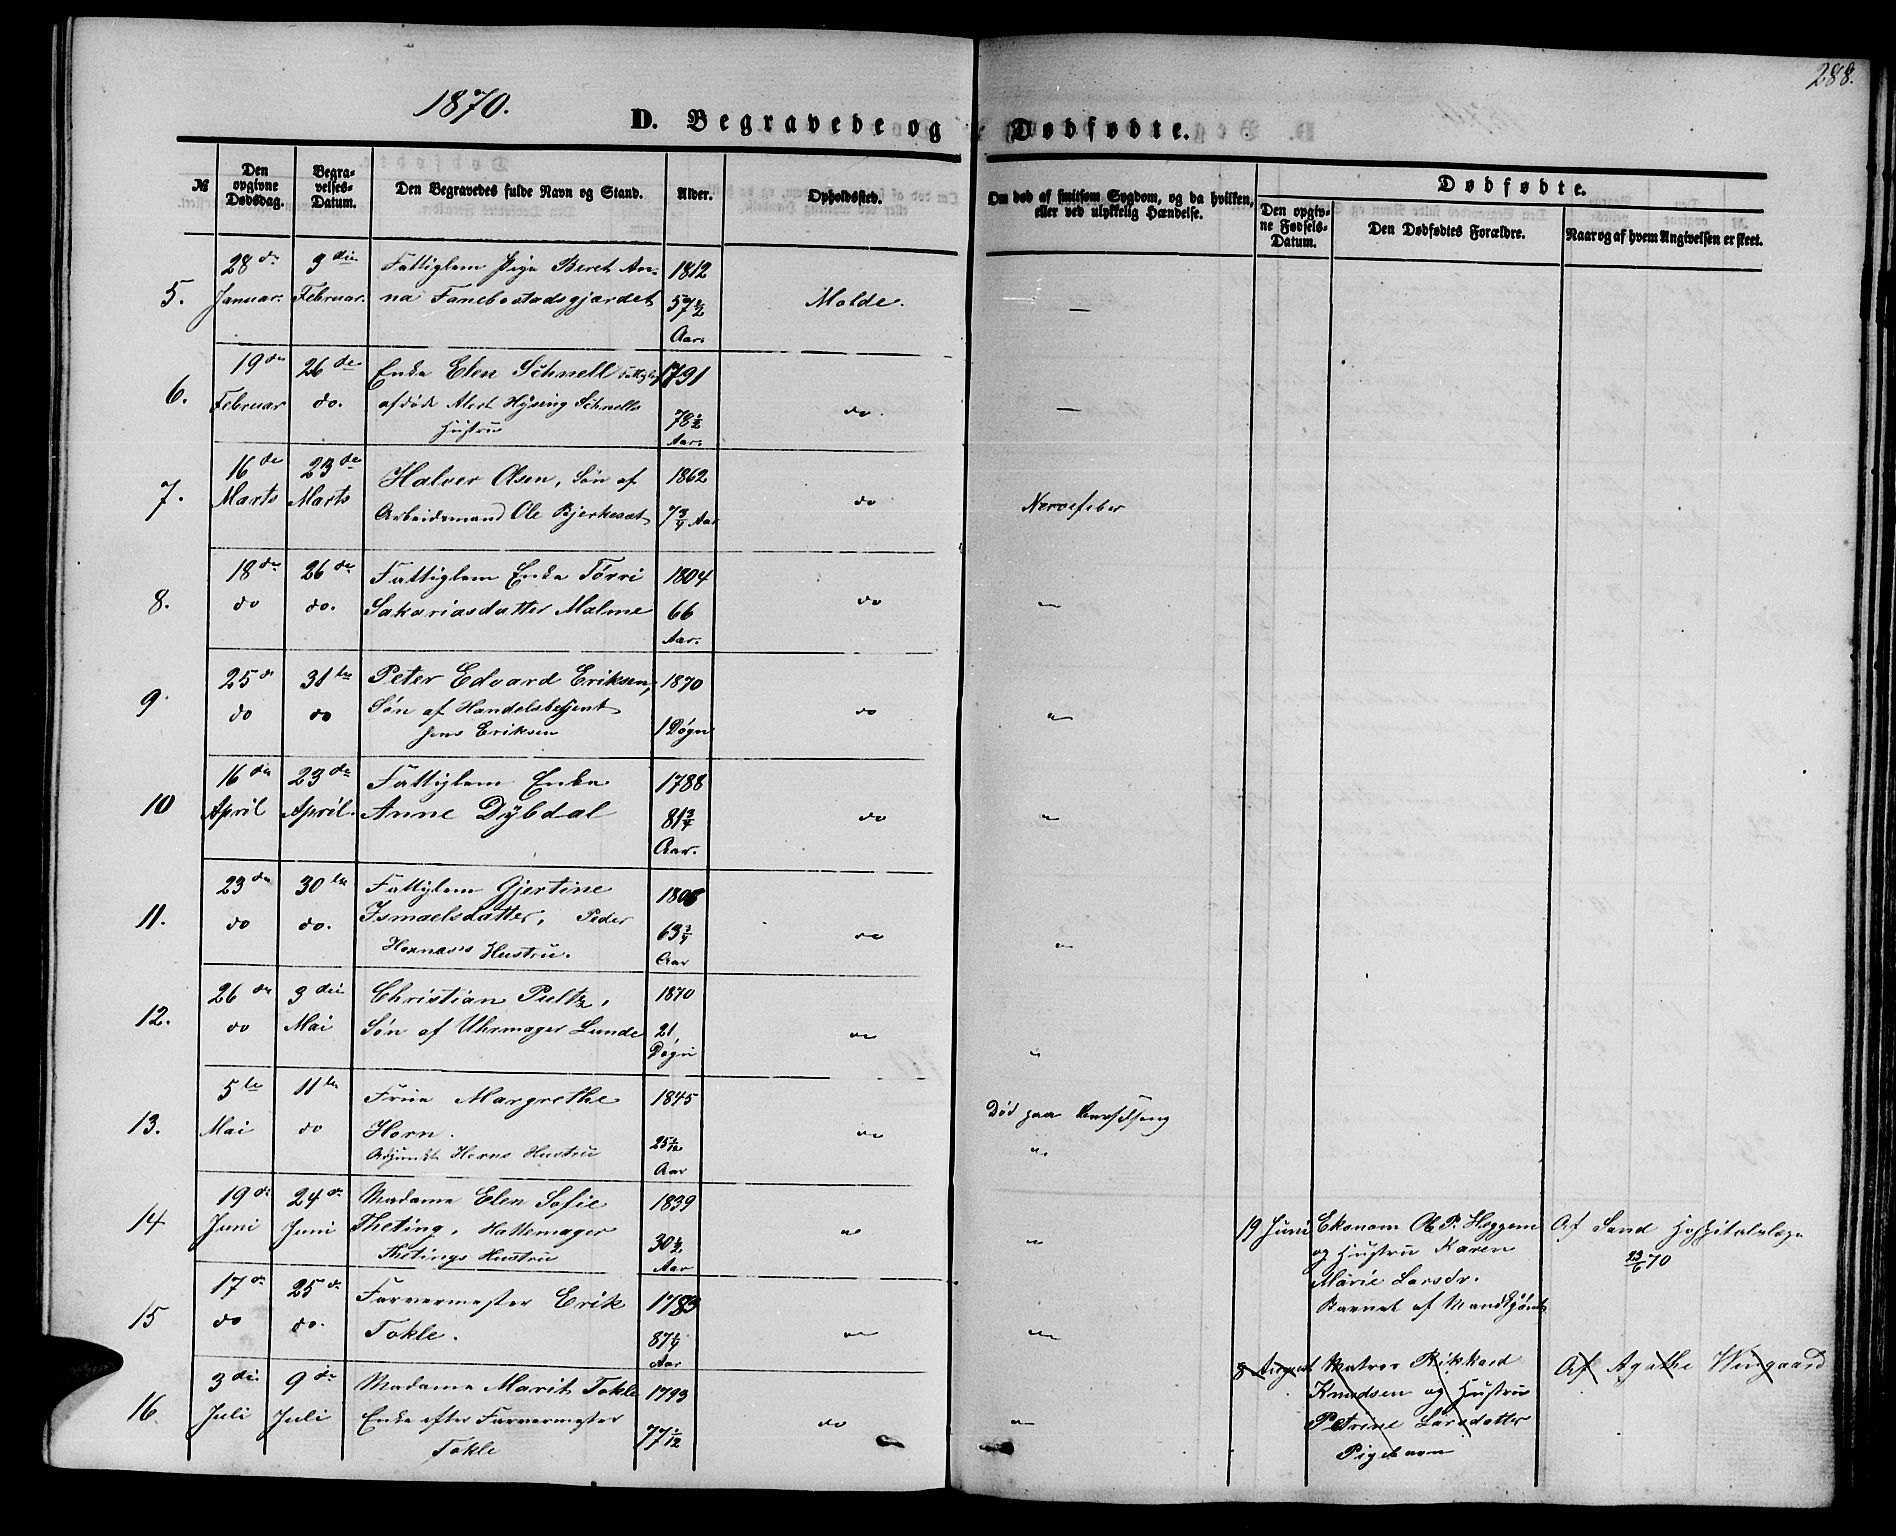 288.
1870.
D. Begravede og Dødfødte.
№
Den opgivne Dødsdag.
Begravelses-Datum.
Den Begravedes fulde Navn og Stand.
Alder.
Opholdssted.
Om død af smitsom Sygdom, og da hvilken, eller ved ulykkelig Hændelse.
Dødfødte.
Den opgivne Fødsels-Datum.
Den Dødfødtes Forældre.
Naar og af hvem Angivelsen er skeet.
5. 28de Januar. 3die Februar. Fattiglem Pige Beret Anna Fanebostadsgjærdet 1812 57 1/2 Aar. Molde. —
6. 19de Februar 26de do. Enke Elen Schnell
afdøde Alert Hysing Schnells
Hustru 1791 78 1/2 Aar. do. —
7. 16de Marts 23de Marts Halvor Olsen, Søn af
Arbeidsmand Ole Bjerkesæt 1862 7 3/4 Aar do Nervefeber
8. 18de do 26de do. Fattiglem Enke Tørri
Sakariasdatter Malme 1804 66 Aar. do "
9. 25de do 31te do Peter Edvard Eriksen,
Søn af Handelsbetjent
Jens Eriksen 1870 1 Døgn do "
10 16de April 23de April. Fattiglem Enke
Anne Dybdal 1788 81 3/4 Aar. do "
11. 23de do 30te do. Fattiglem Gjertine
Ismaelsdatter, Peder
Hornæses Hustru. 1806 63 3/4 Aar do "
12. 26de do 3die Mai Christian Pultz,
Søn af Uhrmager Lunde 1870 21 Døgn do "
13. 5te Mai 11te do Frue Margrethe
Horn.
Adjunkt Horns Hustru 1845 25 Aar do Død paa Barselseng
"
14 19de Juni 24de Juni Madame Elen Sofie
Theting, Hattemager
Thetings Hustru 1839 30 1/2 Aar do "
19 Juni Ekonom Ol. P. Heggem
og Hustru Karen
Marie Larsdr.
Barnet af Mandkjøn
Af Sand Hospitalslæge
23/6 70
15 17de do 25de do. Farvermester Erik
Tokle. 1783 87 1/4 Aar do "
16 3die Juli 9de Juli Madame Marit Tokle
Enke efter Farvermester
Tokle 1793 77 1/12 do "
8 August Matros Rikkard
Knudsen og Hustru
Petrine Larsdatter
Pigebarn
Af Agathe Wingaard